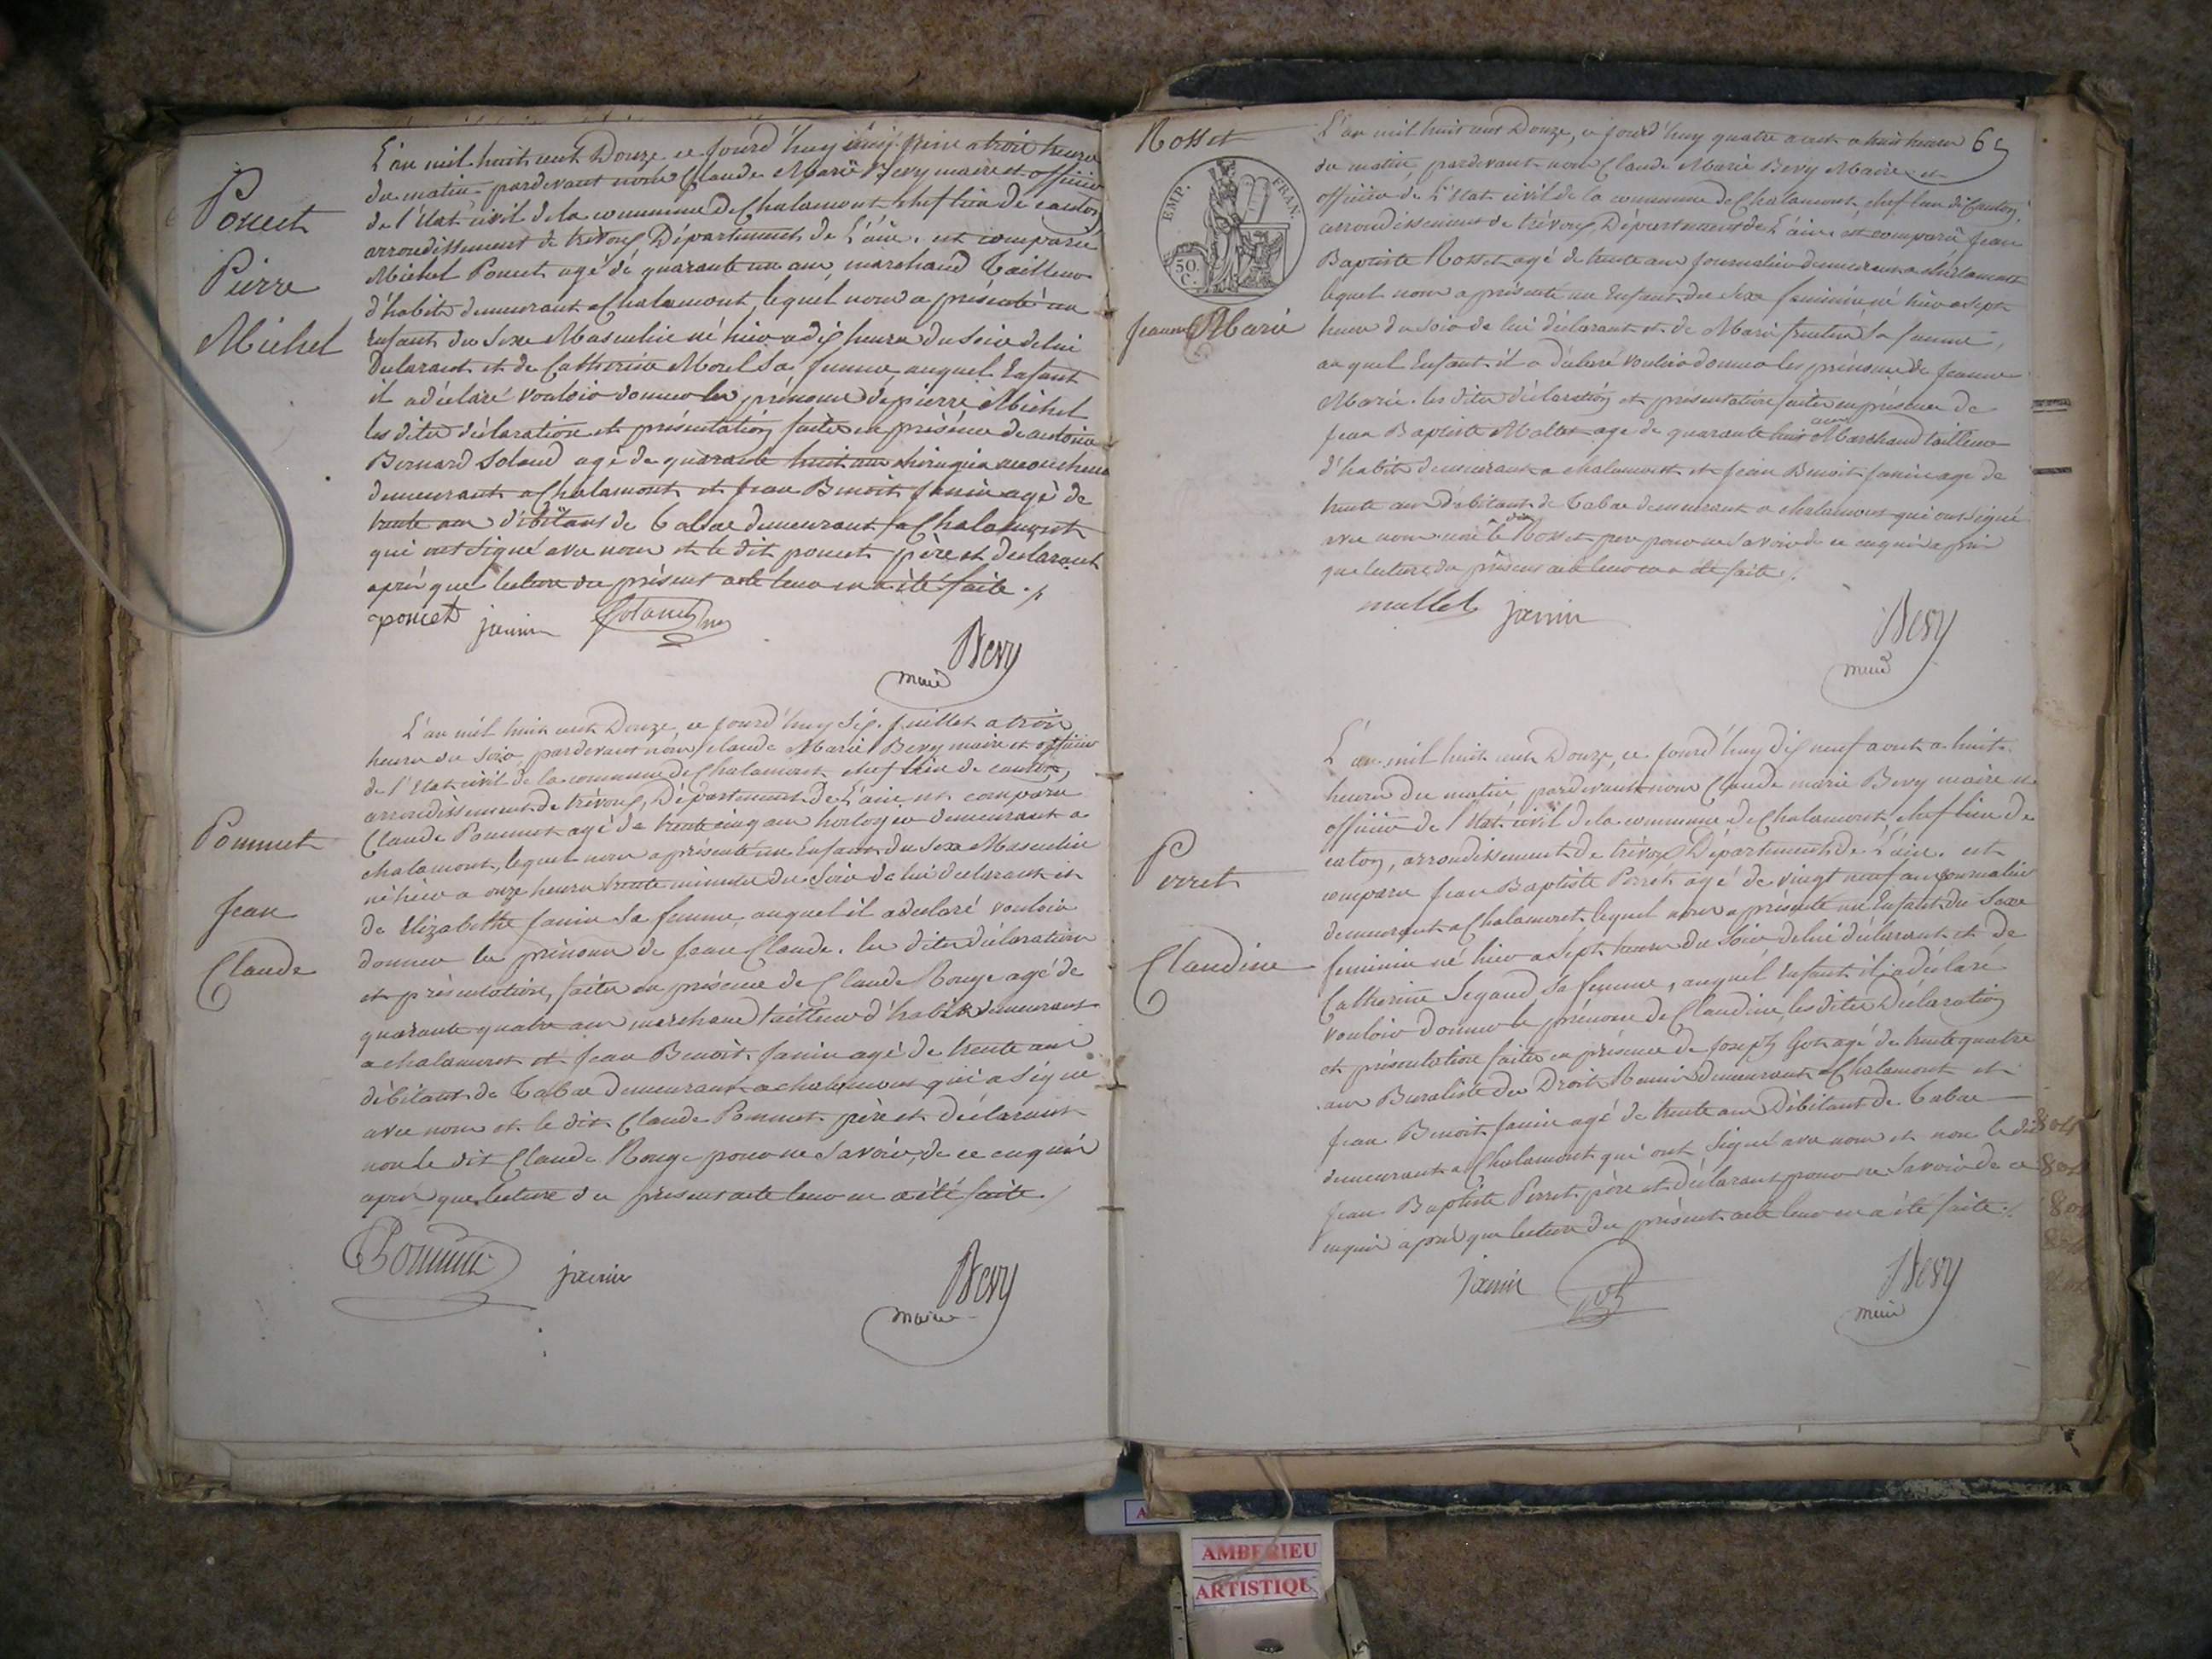 Poncet
Pierre
Michel
L'an mil huit cent Douze ce jourd'huy juin a trois heures
du matin pardevant nous Claude Marie Bevy maire et officier
de l'Etat civil de la commune de Chalamont chef lieu de canton
arrondissement de trévoux Département de L'ain. est comparu
Michel Poncet agé de quarante un ans, marchand Tailleur
d'habits demeurant a Chalamont, lequel nous a présenté un
Enfant du Sexe Masculin né hier a dix heures du Soir de lui
Déclarant et de Catherine Morel Sa femme auquel Enfant
il a déclaré vouloir donner les prénoms de pierre Michel
les dites déclaration et présentation faites en présence de antoine
Bernard agé de quarante huit ans chirurgien accoucheur
demeurant a Chalamont et Jean Benoit Janin agé de
trente ans débitant de Tabac demeurant a Chalamont
qui ont signé avec nous et le dit poncet père et déclarant
après que lecture du présent acte leur en a été faite ./.
poncet janin
Bevy
maire
Pommet
Jean
Claude
L'an mil huit cent Douze, ce jourd'huy Six Juillet a trois
heures du Soir, pardevant nous Claude Marie Bevy maire et officier
de l'Etat civil de la commune de Chalamont chef lieu de canton,
arrondissement de trévoux, Département de L'ain est comparu
Claude Pommet agé de trente cinq ans horloger demeurant a
chalamont, lequel nous a présenté un Enfant du Sexe Masculin
né hier a onze heures trente minutes du Soir de lui déclarant et
de Elizabeth Janin Sa femme, auquel il a déclaré vouloir
donner les prénoms de Jean Claude. les dites déclaration
et présentation, faites en présence de Claude Rouge agé de
quarante quatre ans marchand tailleur d'habits demeurant
a chalamont et Jean Benoit Janin agé de trente ans
débitant de Tabac demeurant a chalamont qui a signé
avec nous et le dit Claude Pommet père et déclarant
non le dit Claude Rouge pour ne Savoir, de ce enquis
après que lecture du présent acte leur en a été faite ./
Pommet janin
Bevy
maire
Rosset
EMP. FRAN.
50.
C.
Jeanne Marie
L'an mil huit cent Douze, ce jourd'huy quatre aout a huit heures 65
du matin, pardevant nous Claude Marie Bevy Maire et
officier de L'Etat civil de la commune de Chalamont, chef lieu de Canton,
arrondissement de trévoux, Département de L'ain. est comparu Jean
Baptiste Rosset agé de trente ans journalier demeurant a chalamont
lequel nous a présenté un Enfant du Sexe féminin né hier a Sept
heures du Soir de lui déclarant et de Marie Sa femme,
auquel Enfant il a déclaré vouloir donner les prénoms de Jeanne
Marie. les dites déclaration et présentation faites en présence de
Jean Baptiste Mallet agé de quarante huit ans Marchand tailleur
d'habits demeurant a chalamont et Jean Benoit Janin agé de
trente ans Débitant de Tabac demeurant a chalamont qui ont signé
avec nous non le dit Rosset pere pour ne Savoir de ce enquis après
que lecture du présent acte leur en a été faite ./.
mallet janin
Bevy
maire
Perret
Claudine
L'an mil huit cent Douze, ce jourd'huy dix neuf aout a huit
heures du matin pardevant nous Claude marie Bevy maire et
officier de l'Etat civil de la commune de Chalamont, chef lieu de
caton, arrondissement de trévoux Département de L'ain. est
comparu Jean Baptiste Perret agé de vingt neuf ans journalier
demeurant a Chalamont, lequel nous a présenté un Enfant du Sexe
feminin né hier a Sept heures du Soir de lui déclarant et de
Catherine Segaud Sa femme, auquel Enfant il a déclaré
vouloir donner le prénom de Claudine, les dites Déclaration
et présentation faites en présence de Joseph Got agé de trente quatre
ans Buraliste des Droits Reunis demeurant a Chalamont et
Jean Benoit Janin agé de trente ans Débitant de Tabac
demeurant a Chalamont qui ont Signé avec nous et non le dit
Jean Baptiste Perret père et déclarant pour ne Savoir de ce
enquis après que lecture du présent acte leur en a été faite ./.
janin
Bevy
maire
AMBERIEU
ARTISTIQUE